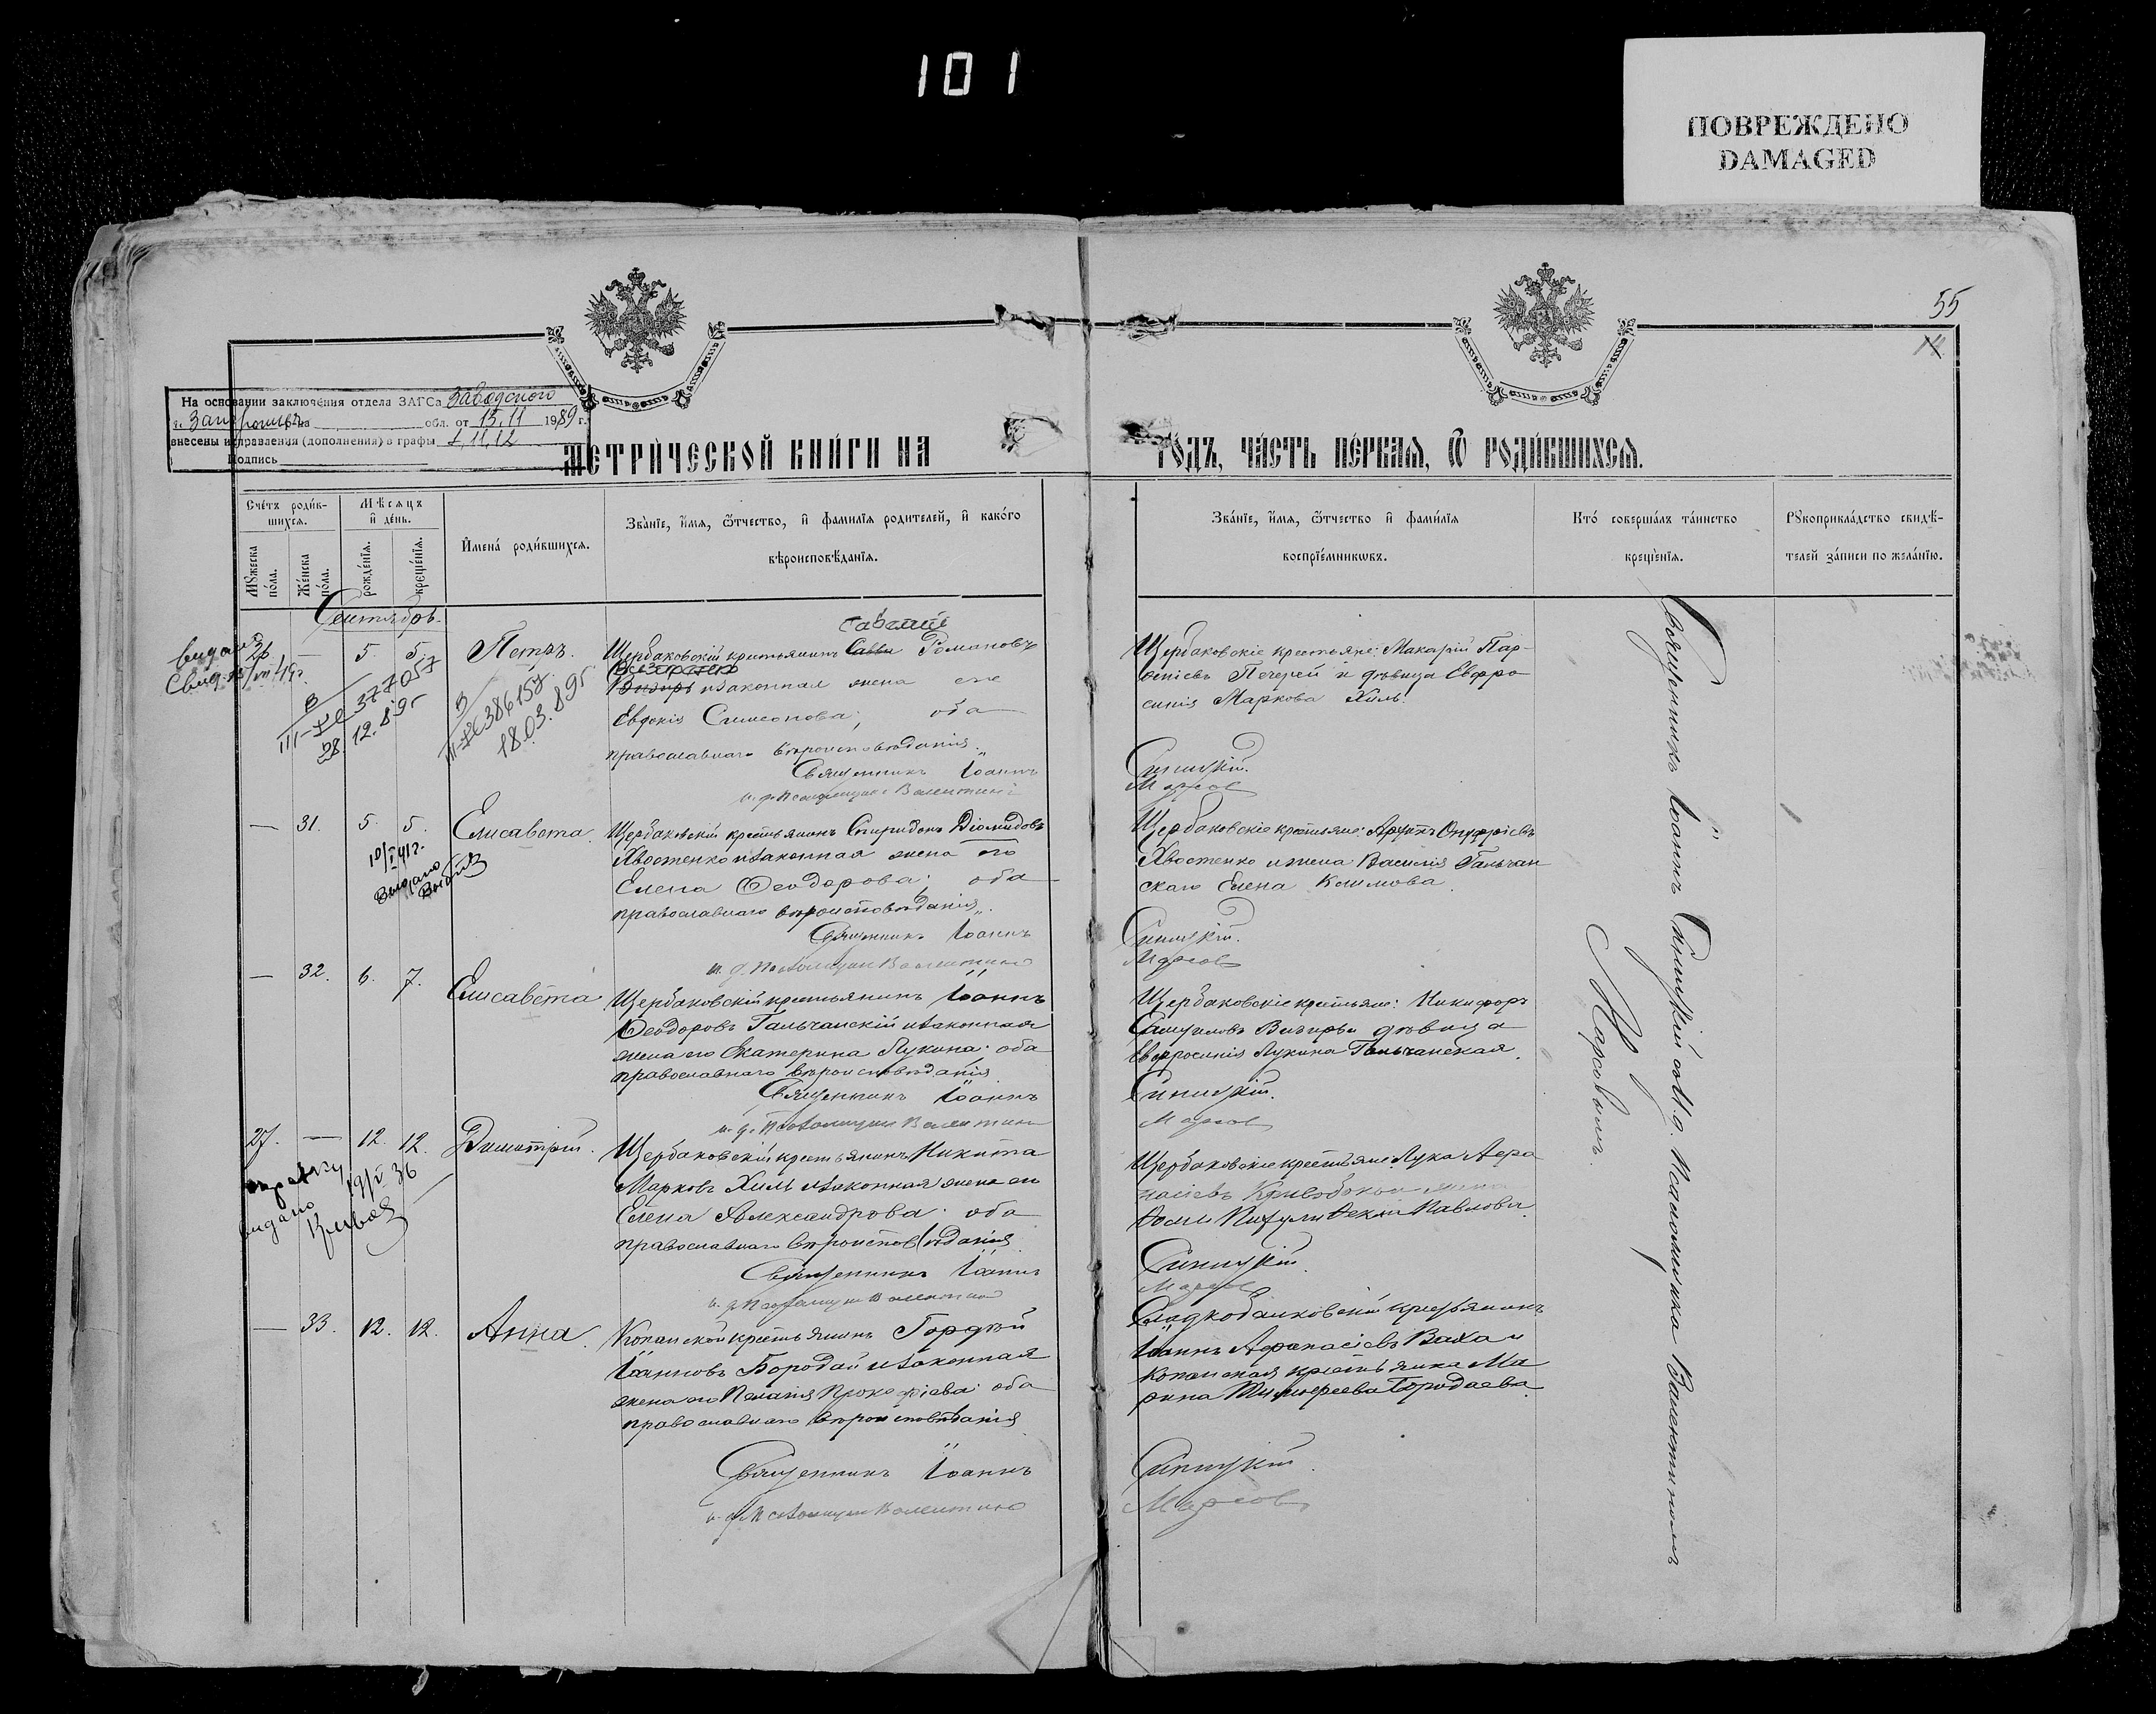 101
ПОВРЕЖДЕНО
DAMAGED
55
На основании заключения отдела ЗАГСа Заводского
г. Запорожья на обл. от 15.11 1989 г.
внесены исправления (дополнения) в графы 1, 11, 12
Подпись
МЕТРИЧЕСКОЙ КНИГИ НА
ГОДЪ, ЧАСТЬ ПЕРВАЯ, Ѿ РОДИВШИХСЯ.
Счетъ родившихся.
Мѣсяцъ и день.
Имена родившихся.
Званіе, имя, ѿтчество, и фамилія родителей, и какого
вѣроисповѣданія.
Званіе, имя, ѿтчество и фамилія
воспріемникѡвъ.
Кто совершалъ таинство
крещенія.
Рꙋкоприкладство свидѣ-
телей записи по желанію.
Мꙋжеска пола.
Женска пола.
рожденія.
крещенія.
Сентябрь.
26 — 5. 5. Петръ.
Савелій
Щербаковскій крестьянинъ Савва Романовъ
Визирь и законная жена его
Евдокія Симеонова; оба
православнаго вѣроисповѣданія.
Священникъ Іоаннъ
и. д. Псаломщика Валентинъ
Щербаковскіе крестьяне: Макарій Пар-
ѳеніевъ Печерей и дѣвица Евфро
синія Маркова Хиль.
Синицкій.
Марсов
III-ЖС 377057
28.12.89г
386157
18.03.89г
— 31. 5. 5. Елисавета.
Щербаковскій крестьянинъ Спиридонъ Діомидовъ
Хвостенко и законная жена его
Елена Ѳеодорова; оба
православнаго вѣроисповѣданія.
Священникъ Іоаннъ
и. д. Псаломщика Валентинъ
Щербаковскіе крестьяне: Онуфріевъ
Хвостенко и жена Василія Гальчан
скаго Елена Климова.
Синицкій.
Марсов
Выдано
— 32. 6. 7. Елисавета
Щербаковскій крестьянинъ Іоаннъ
Ѳеодоровъ Гальчанскій и законная
жена его Екатерина Лукина; оба
православнаго вѣроисповѣданія
Священникъ Іоаннъ
и. д. Псаломщика Валентинъ
Щербаковскіе крестьяне: Никифоръ
Самуиловъ Визирь и дѣвица
Евфросинія Лукина Гальчанская.
Синицкій.
Марсов
27. — 12. 12. Димитрій.
Щербаковскій крестьянинъ Никита
Марковъ Хиль и законная жена его
Елена Александрова; оба
православнаго вѣроисповѣданія
Священникъ Іоаннъ
и. д. Псаломщика Валентинъ
Щербаковскіе крестьяне: Лука Аѳа
насіевъ Кривобокъ и жена
Павлова.
Синицкій
Марсов
видано
— 33. 12. 12. Анна.
Копанской крестьянинъ Гордѣй
Іоанновъ Бородай и законная
жена его Пелагія Прокофіева; оба
православнаго вѣроисповѣданія
Священникъ Іоаннъ
и. д. Псаломщика Валентинъ
Сладкобалковскій крестьянинъ
Іоаннъ Аѳанасіевъ Ваха и
Копанская крестьянка Ма
рина Тимоѳеева Бородаева
Синицкій.
Марсов
Священникъ Іоаннъ Синицкій съ и. д. Псаломщика Валентиномъ
Марсовымъ.